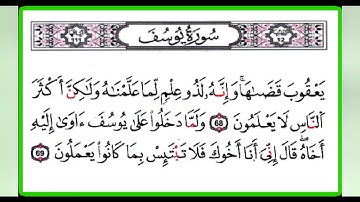 سُورَةُ يُوسُفَ
يَعْقُوبَ قَضَىٰهَا ۚ وَإِنَّهُۥ لَذُو عِلْمٍ لِّمَا عَلَّمْنَـٰهُ وَلَـٰكِنَّ أَكْثَرَ
ٱلنَّاسِ لَا يَعْلَمُونَ 68 وَلَمَّا دَخَلُوا۟ عَلَىٰ يُوسُفَ ءَاوَىٰٓ إِلَيْهِ
أَخَاهُ ۖ قَالَ إِنِّىٓ أَنَا۠ أَخُوكَ فَلَا تَبْتَئِسْ بِمَا كَانُوا۟ يَعْمَلُونَ 69